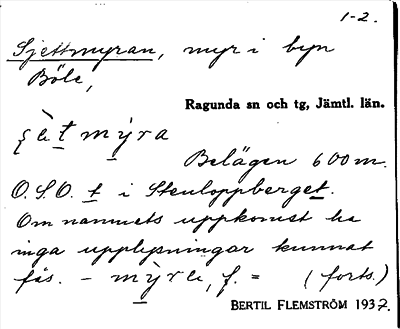 1-2.
Sjettmyran, myr i byn
Böle,
Ragunda sn och tg, Jämtl. län.
Belägen 600 m.
O.S.O. t i Stenloppberget.
Om namnets uppkomst ha
inga upplysningar kunnat
fås. – mỳre, f. = (forts.)
BERTIL FLEMSTRÖM 1937.